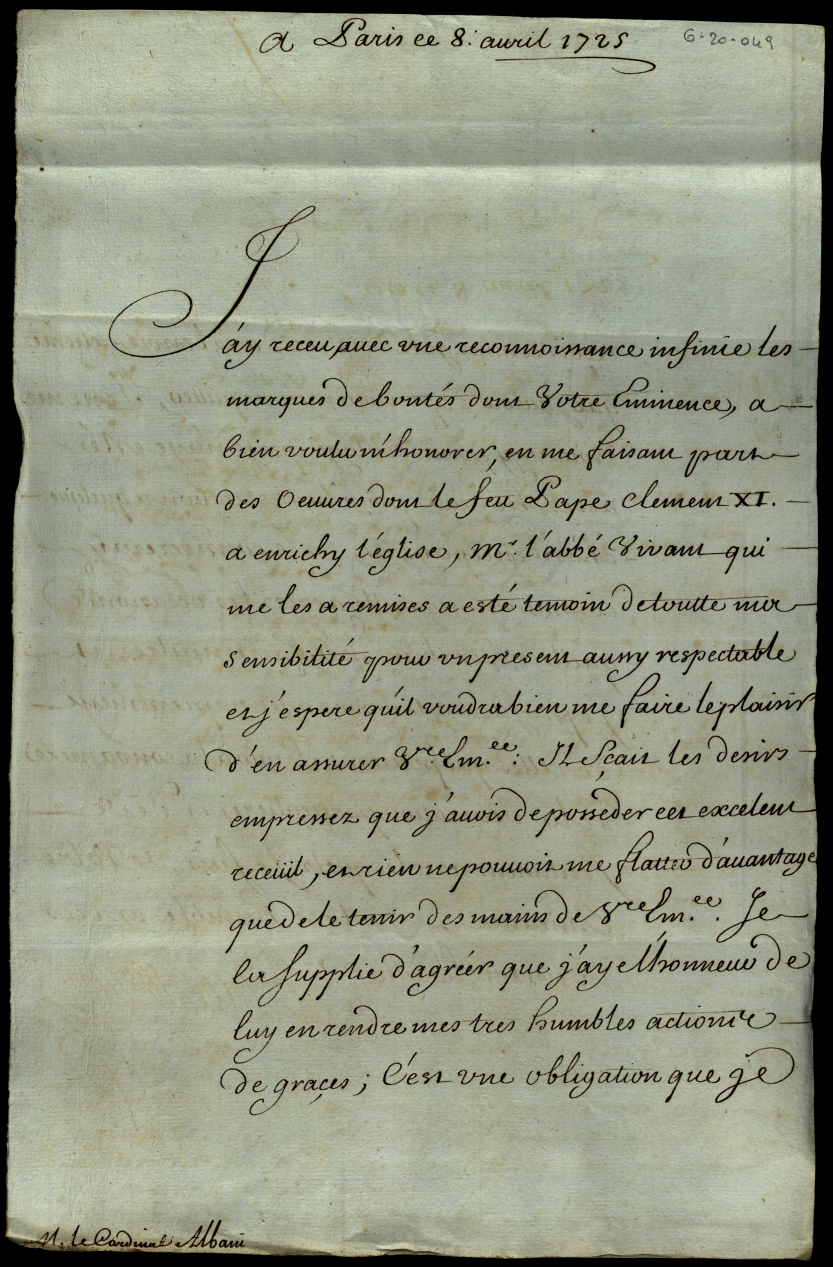 A Paris ce 8. auril 1725
6-20-049
J'ay receu auec vne reconnoissance infinie les
marques de bontés dont Votre Eminence, a
bien voulu m'honorer, en me faisant part
des Oeuures dont le feu Pape Clement XI.
a enrichy l'église, Mr. l'abbé Vivant qui
me les a remises a esté temoin de toutte ma
sensibilité pour vn present aussy respectable
et j'espere qu'il voudra bien me faire le plaisir
d'en assurer Vre Em.ce: Il sçait les desirs
empressez que j'auois de posséder cet excelent
receüil, et rien ne pouuoit me flatter d'auantage
que de le tenir des mains de Vre Em.ce. Je
la supplie d'agréer que j'aye l'honneur de
luy en rendre mes tres humbles actions
de graces; C'est vne obligation que je
M. le Cardinal Albani